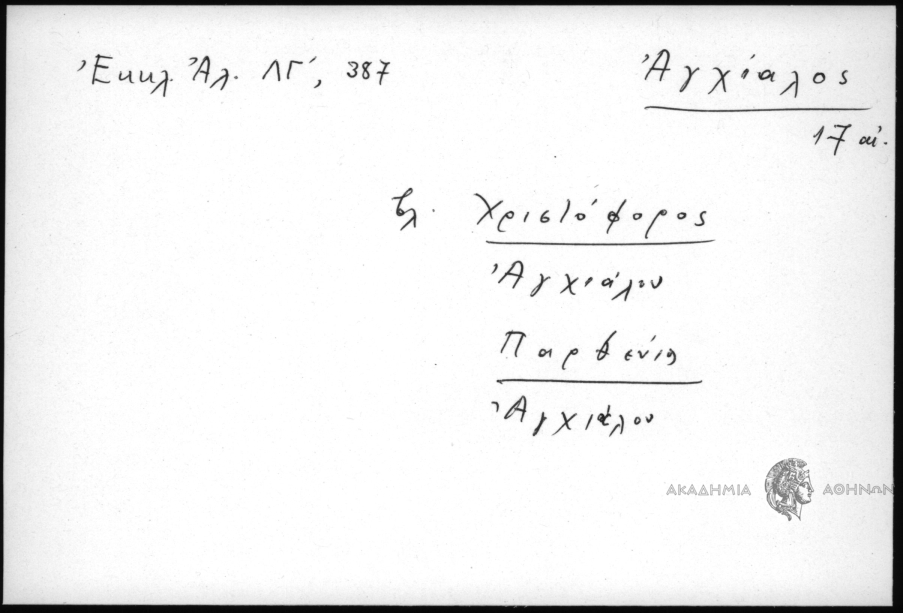 Ἐκκλ. Ἀλ. ΛΓ´, 387
Ἀγχίαλος
17 αἰ.
βλ. Χριστόφορος
Ἀγχιάλου
Παρθένιος
Ἀγχιάλου
ΑΚΑΔΗΜΙΑ ΑΘΗΝΩΝ